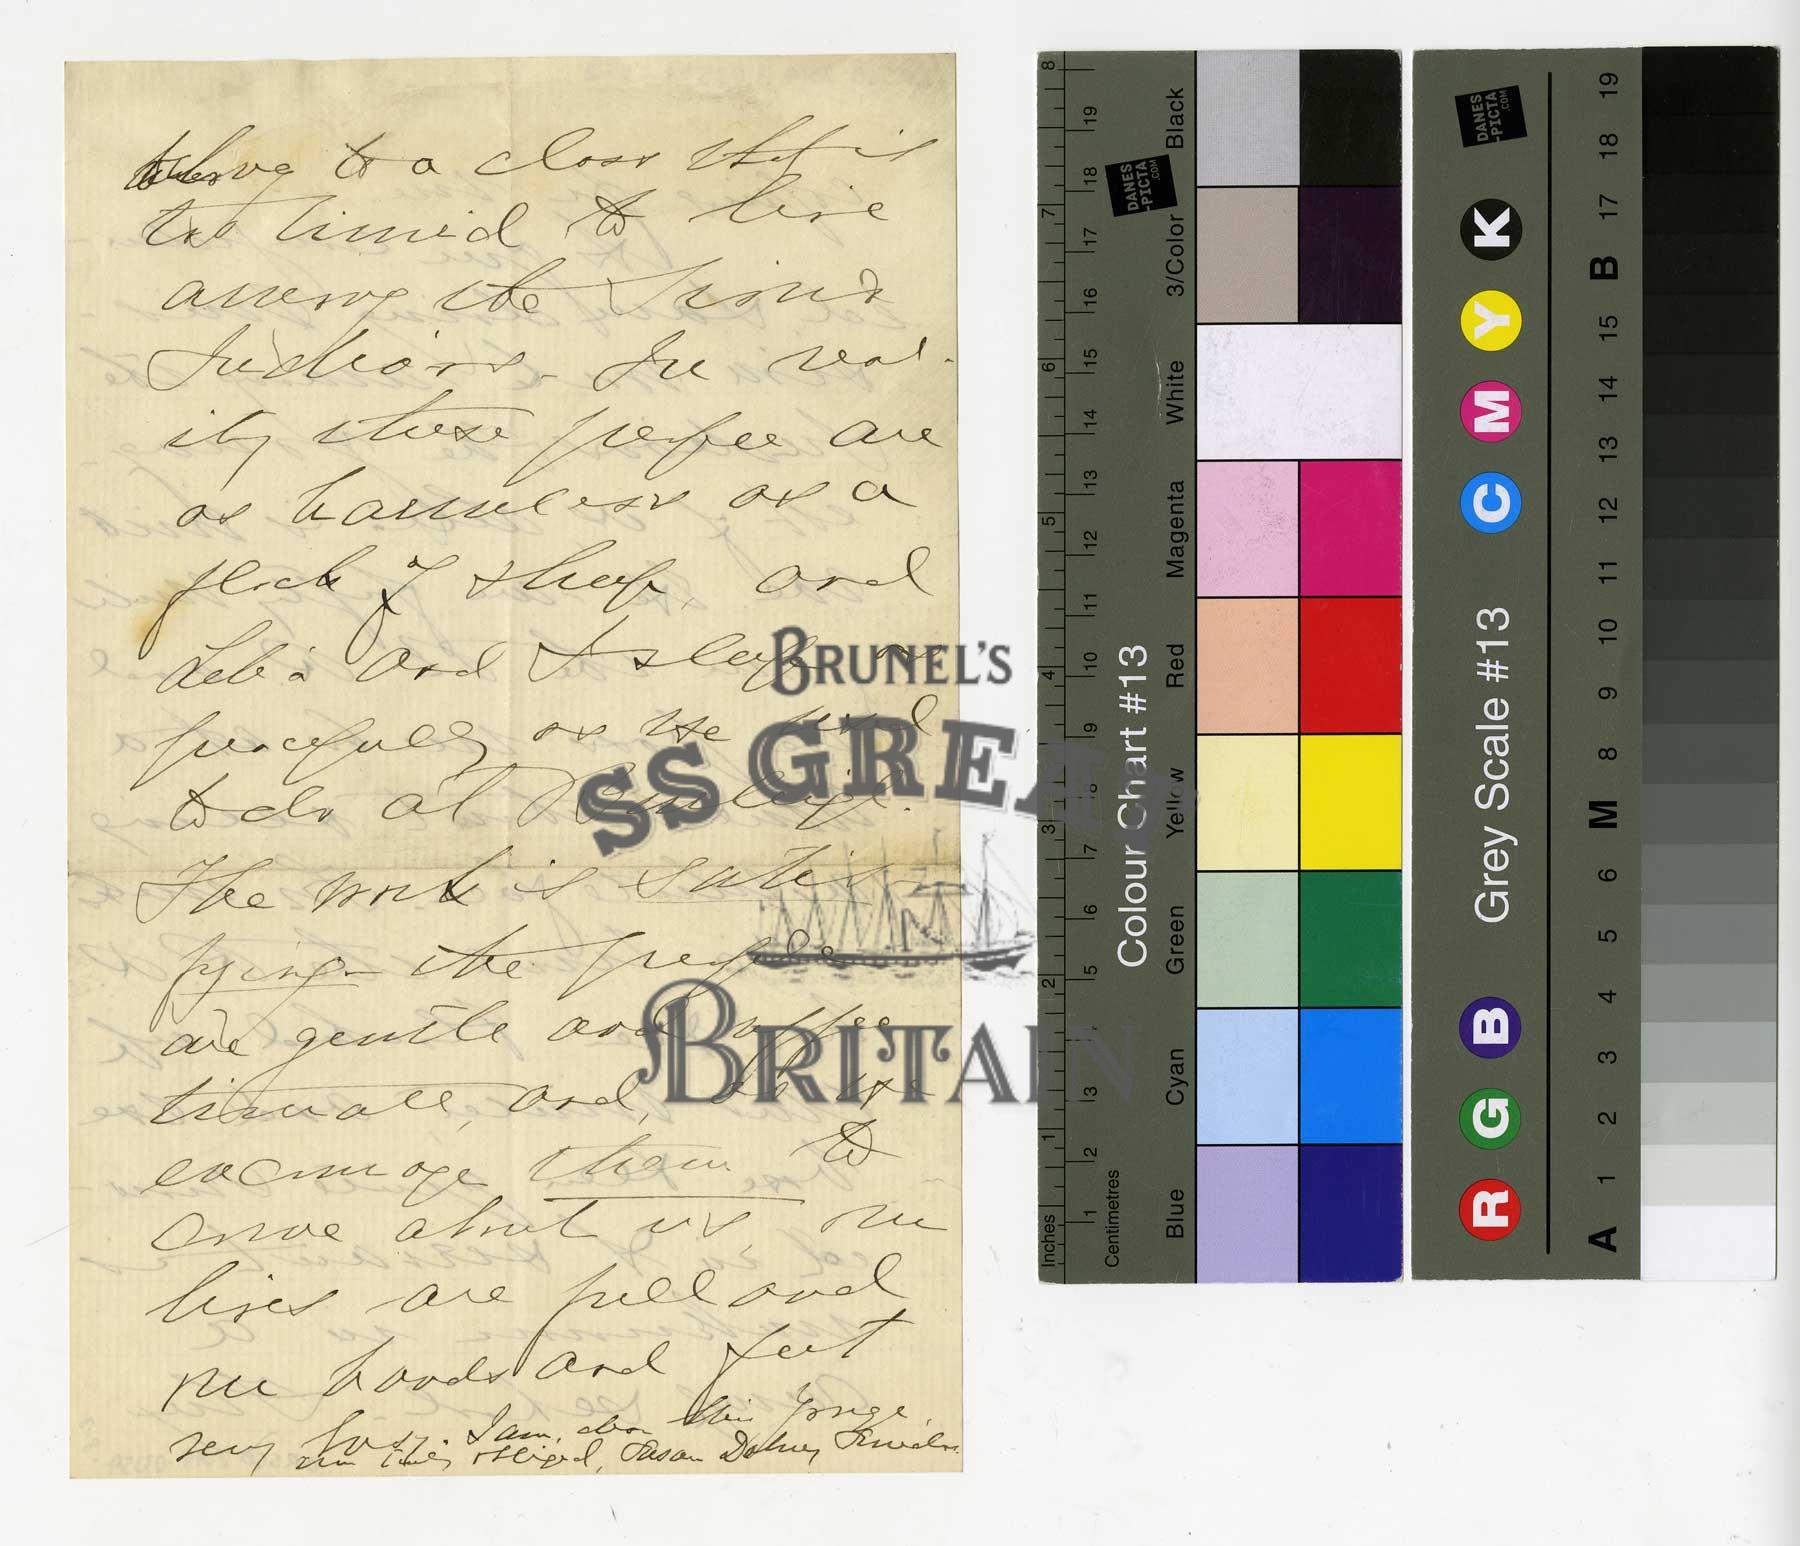 belong to a class that is
too timid to live
among the Sioux
Indians. In real-
ity these people are
as harmless as a
flock of sheep, and
and I sleep as
peacefully as we used
to do at
The work is satis-
fying - the people
are gentle and affec-
tionate, and, as we
encourage them to
come about us, our
lives are full and
our hands and feet
very busy. I am, dear Miss Yonge,
Susan
BRUNEL'S
SS GREAT
BRITAIN
Inches
Centimetres
1 2 3 4 5 6 7 8
1 2 3 4 5 6 7 8 9 10 11 12 13 14 15 16 17 18 19
Colour Chart #13
Blue
Cyan
Green
Yellow
Red
Magenta
White
3/Color
Black
DANES
-PICTA
.COM
Grey Scale #13
R G B C M Y K
DANES
-PICTA
.COM
A 1 2 3 4 5 6 M 8 9 10 11 12 13 14 15 B 17 18 19